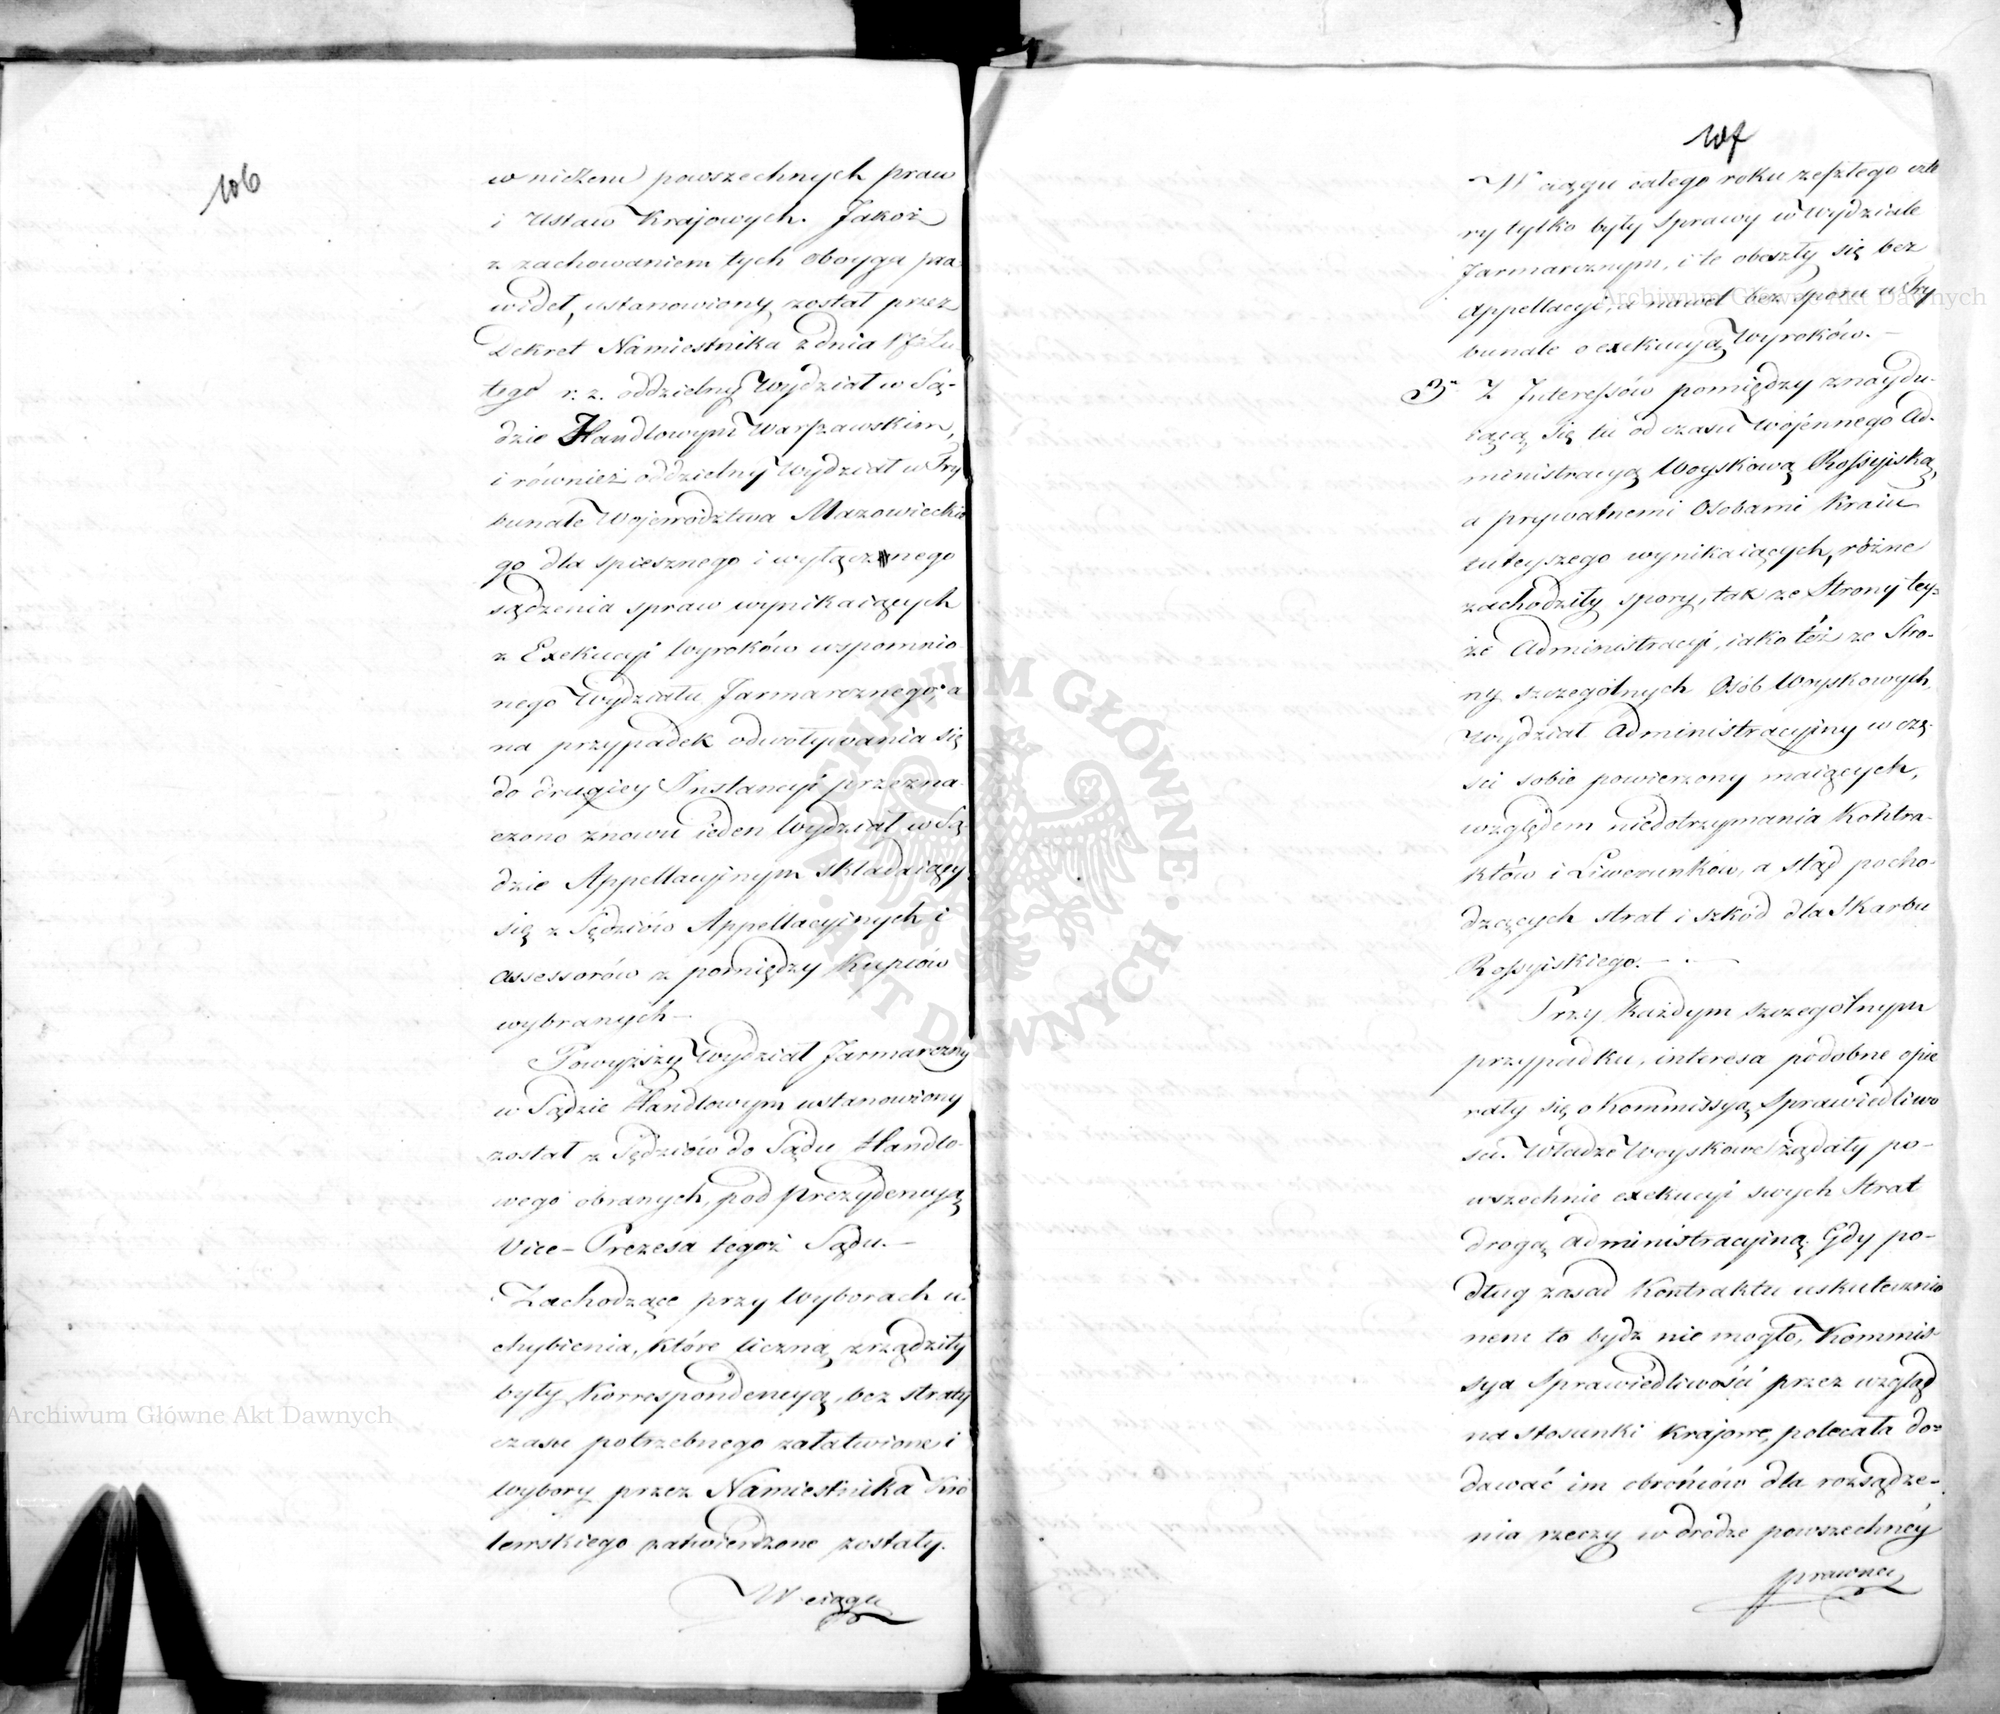 106
w niczem powszechnych praw
i Ustaw Krajowych. Jakoż
z zachowaniem tych oboygu pra
wideł, ustanowiony został przez
Dekret Namiestnika z dnia Lu
tego r. z. oddzielny Wydział w Są-
dzie Handlowym Warszawskim,
i również oddzielny Wydział w Try
bunale Wojewodztwa Mazowieckie
go dla spiesznego i wyłącznego
sądzenia spraw wynikaiących
z Exekucyi Wyroków wspomnio
nego Wydziału Jarmarcznego; a
na przypadek odwoływania się
do drugiey Instancyi przezna
czono znowu ieden Wydział w Są
dzie Appellacyinym składaiący
się z Sędziów Appellacyinych i
Assessorów z pomiędzy Kupców
wybranych –
Powyższy Wydział Jarmarczny
w Sądzie Handlowym ustanowiony
został z Sędziów do Sądu Handlo-
wego obranych, pod prezydencyą
Vice-Prezesa tegoż Sądu. –
Zachodzące przy Wyborach u
chybienia, które liczną zrządziły
były Korrespondencyą, bez straty
czasu potrzebnego załatwione i
Wybory przez Namiestnika Kró
lewskiego zatwierdzone zostały.
W ciągu
107
W ciągu całego roku zeszłego czte
ry tylko były Sprawy w Wydziale
Jarmarcznym, i te obeszły się bez
Appellacyi, a nawet bez sporu w Try
bunale o exekucyą Wyroków. –
3. Z Interessów pomiędzy znaydu-
iącą się tu od czasu woiennego Ad-
ministracyą Woyskową Rossyiską,
a prywatnemi Osobami Kraiu
tuteyszego wynikaiących, różne
zachodziły spory, tak ze Strony tey-
że Administracyi, iako też ze Stro-
ny szczególnych Osób Woyskowych,
Wydział Administracyiny w czę-
ści sobie powierzony maiących,
względem niedotrzymania Kontra-
któw i Liwerunków, a stąd pocho-
dzących strat i szkód dla Skarbu
Rossyiskiego. –
Przy każdym szczególnym
przypadku, interesa podobne opie
rały się o Kommissyą Sprawiedliwo
ści. Władze Woyskowe żądały po-
wszechnie exekucyi swych Strat
drogą administracyiną. Gdy po-
dług zasad Kontraktu uskutecznio
nem to bydź nie mogło, Kommis-
sya Sprawiedliwości przez wzgląd
na stosunki Krajowe, polecała do-
dawać im obrońców dla rozsądze-
nia rzeczy w drodze powszechnéy
prawney
Archiwum Główne Akt Dawnych
Archiwum Główne Akt Dawnych
ARCHIWUM GŁÓWNE · AKT DAWNYCH ·